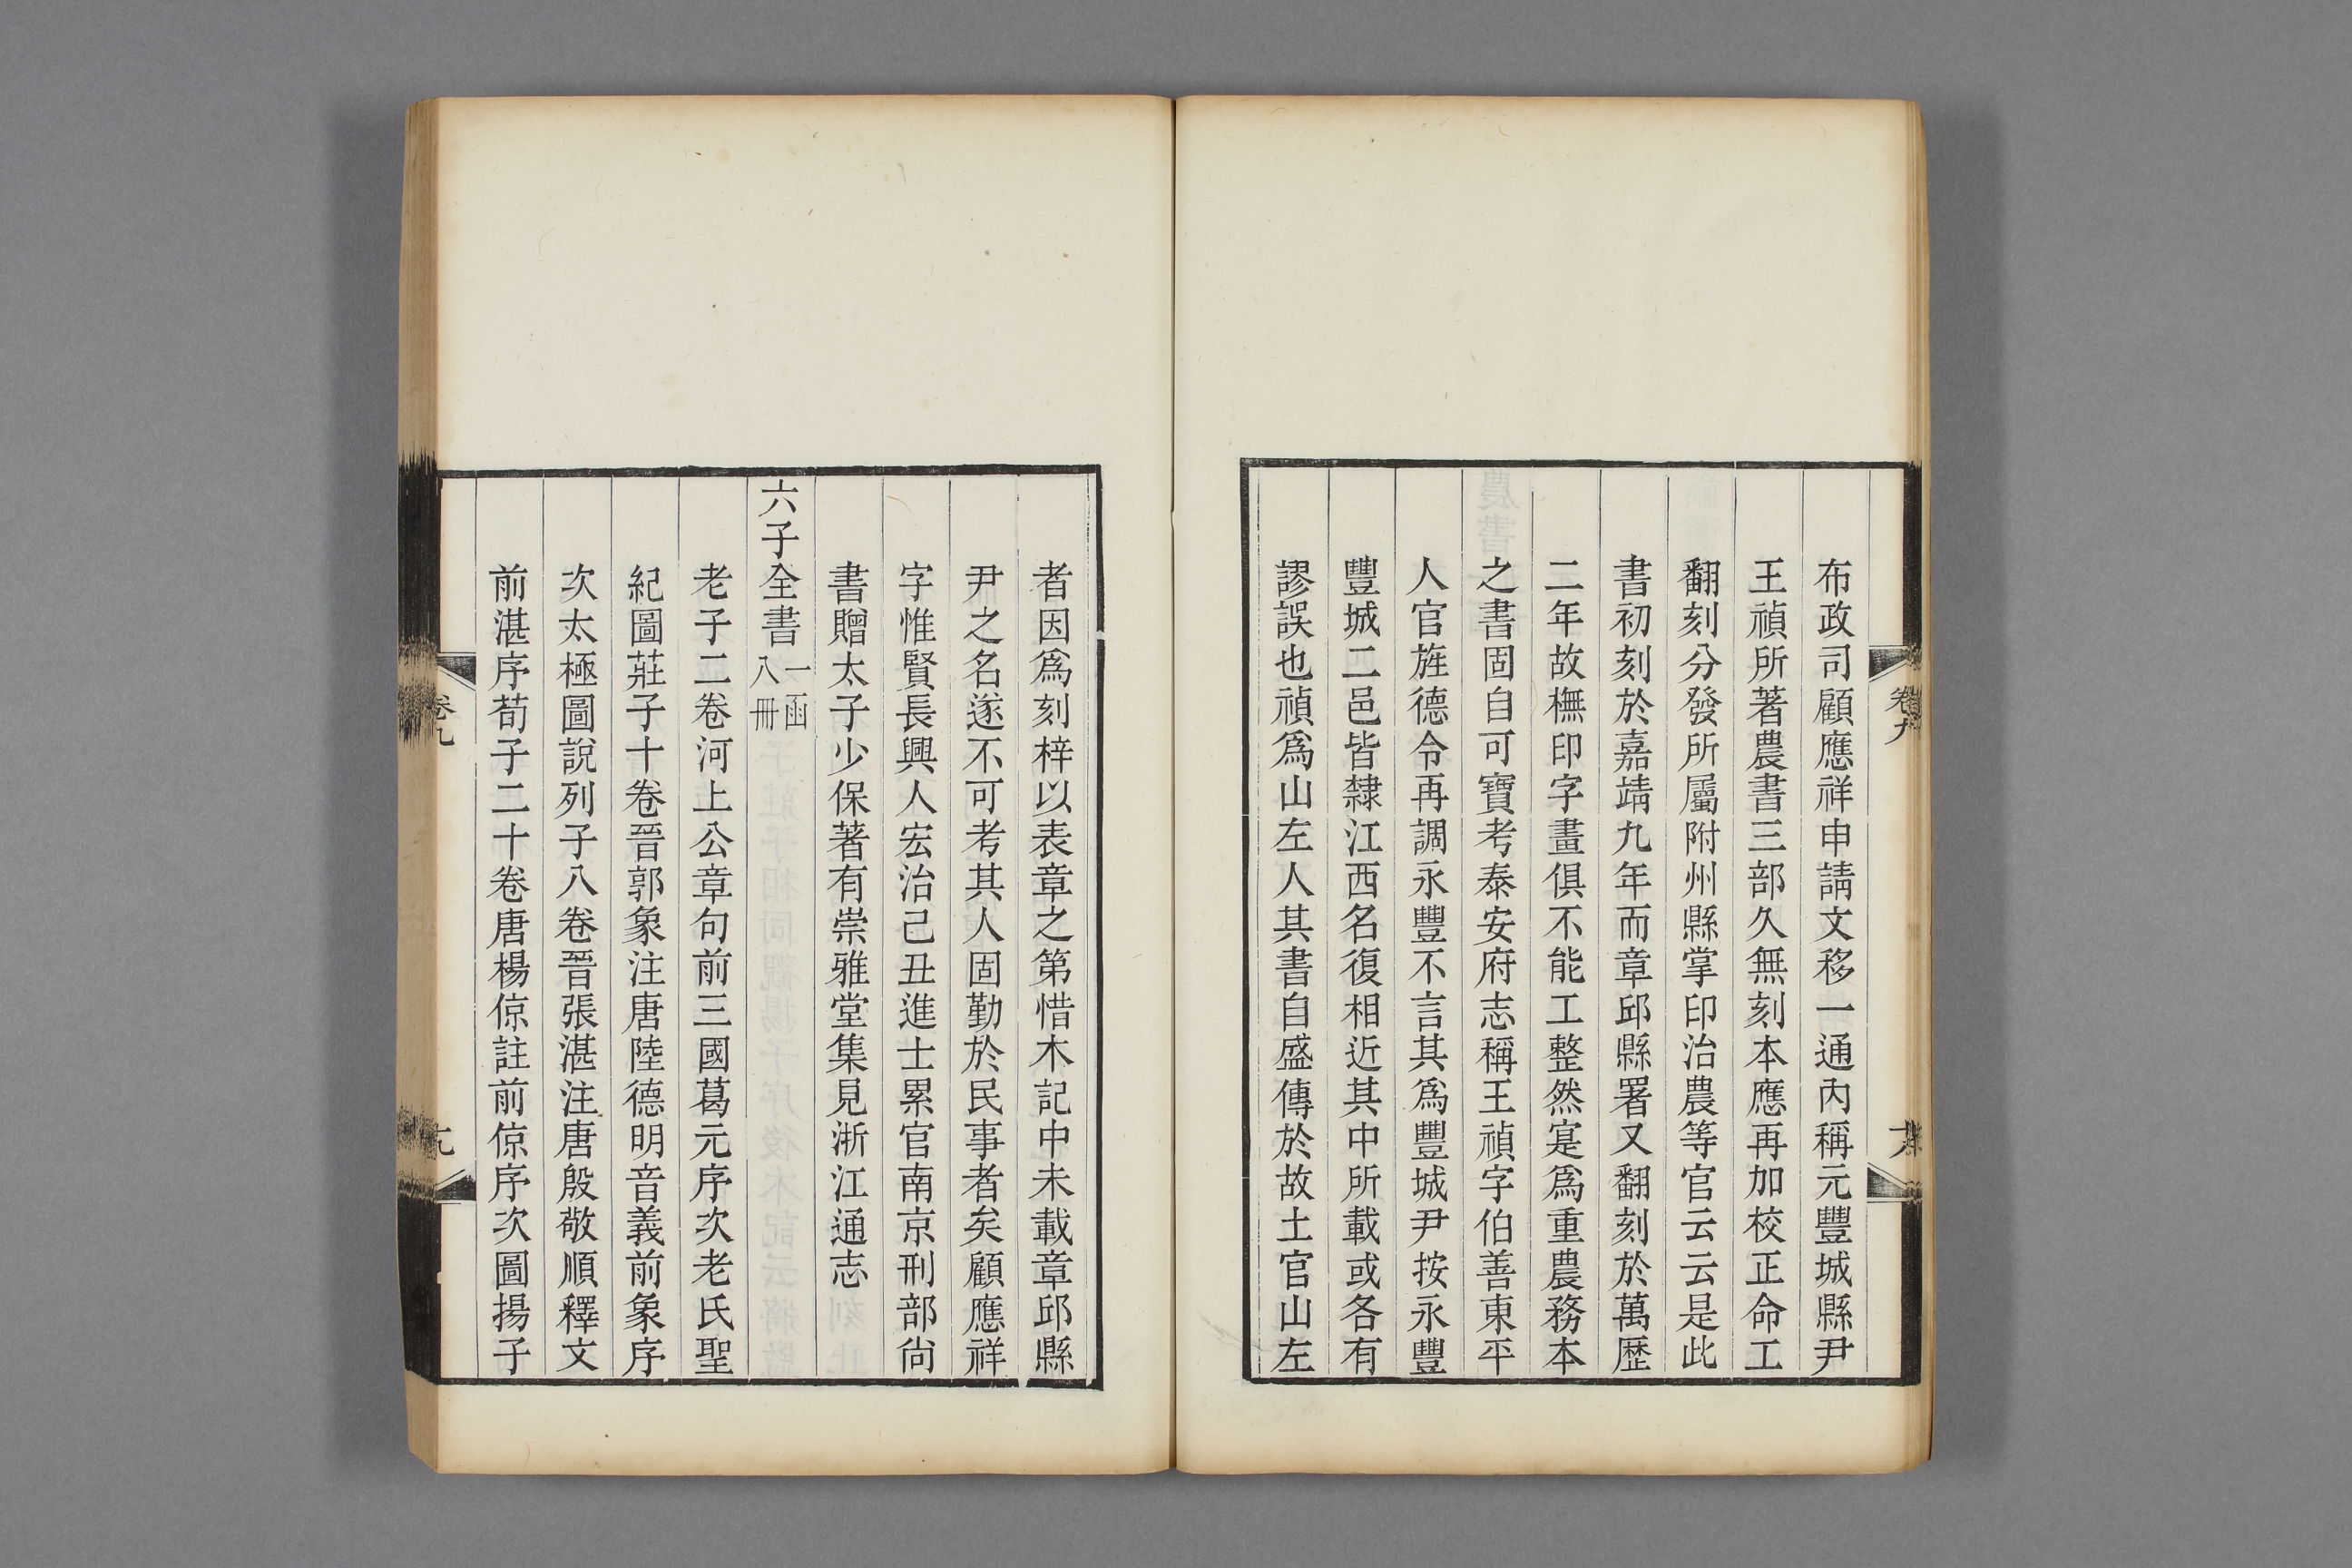 布政司顧應祥申請文移一通內稱元豐城縣尹
王禎所著農書三部久無刻本應再加校正命工
翻刻分發所屬附州縣掌印治農等官云云是此
書初刻於嘉靖九年而章邱縣署又翻刻於萬歷
二年故橅印字畫俱不能工整然寔爲重農務本
之書固自可寶考泰安府志稱王禎字伯善東平
人官旌德令再調永豐不言其爲豐城尹按永豐
豐城二邑皆隸江西名復相近其中所載或各有
謬誤也禎爲山左人其書自盛傳於故土官山左
者因爲刻梓以表章之第惜木記中未載章邱縣
尹之名遂不可考其人固勤於民事者矣顧應祥
字惟賢長興人宏治己丑進士累官南京刑部尙
書贈太子少保著有崇雅堂集見浙江通志
六子全書 一函八冊
老子二卷河上公章句前三國葛元序次老氏聖
紀圖莊子十卷晉郭象注唐陸德明音義前象序
次太極圖說列子八卷晉張湛注唐殷敬順釋文
前湛序荀子二十卷唐楊倞註前倞序次圖揚子
卷九